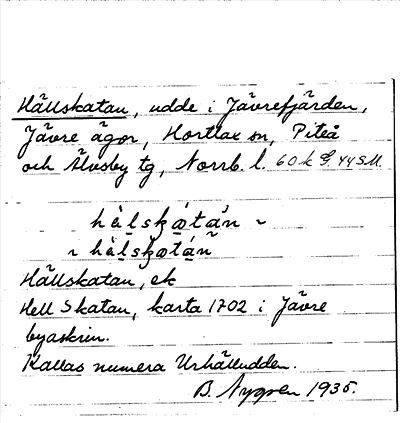 Hällskatan, udde i Jävrefjärden,
Jävre ägor, Hortlax sn, Piteå
och Älvsby tg, Norrb. l. 60 k G. 44 SU.
hὰlskatan ~
~ hὰlskatan
Hällskatan, ek
Hell Skatan, karta 1702 i Jävre
byaskrin.
Kallas numera Urhälludden.
B. Nygren 1935.